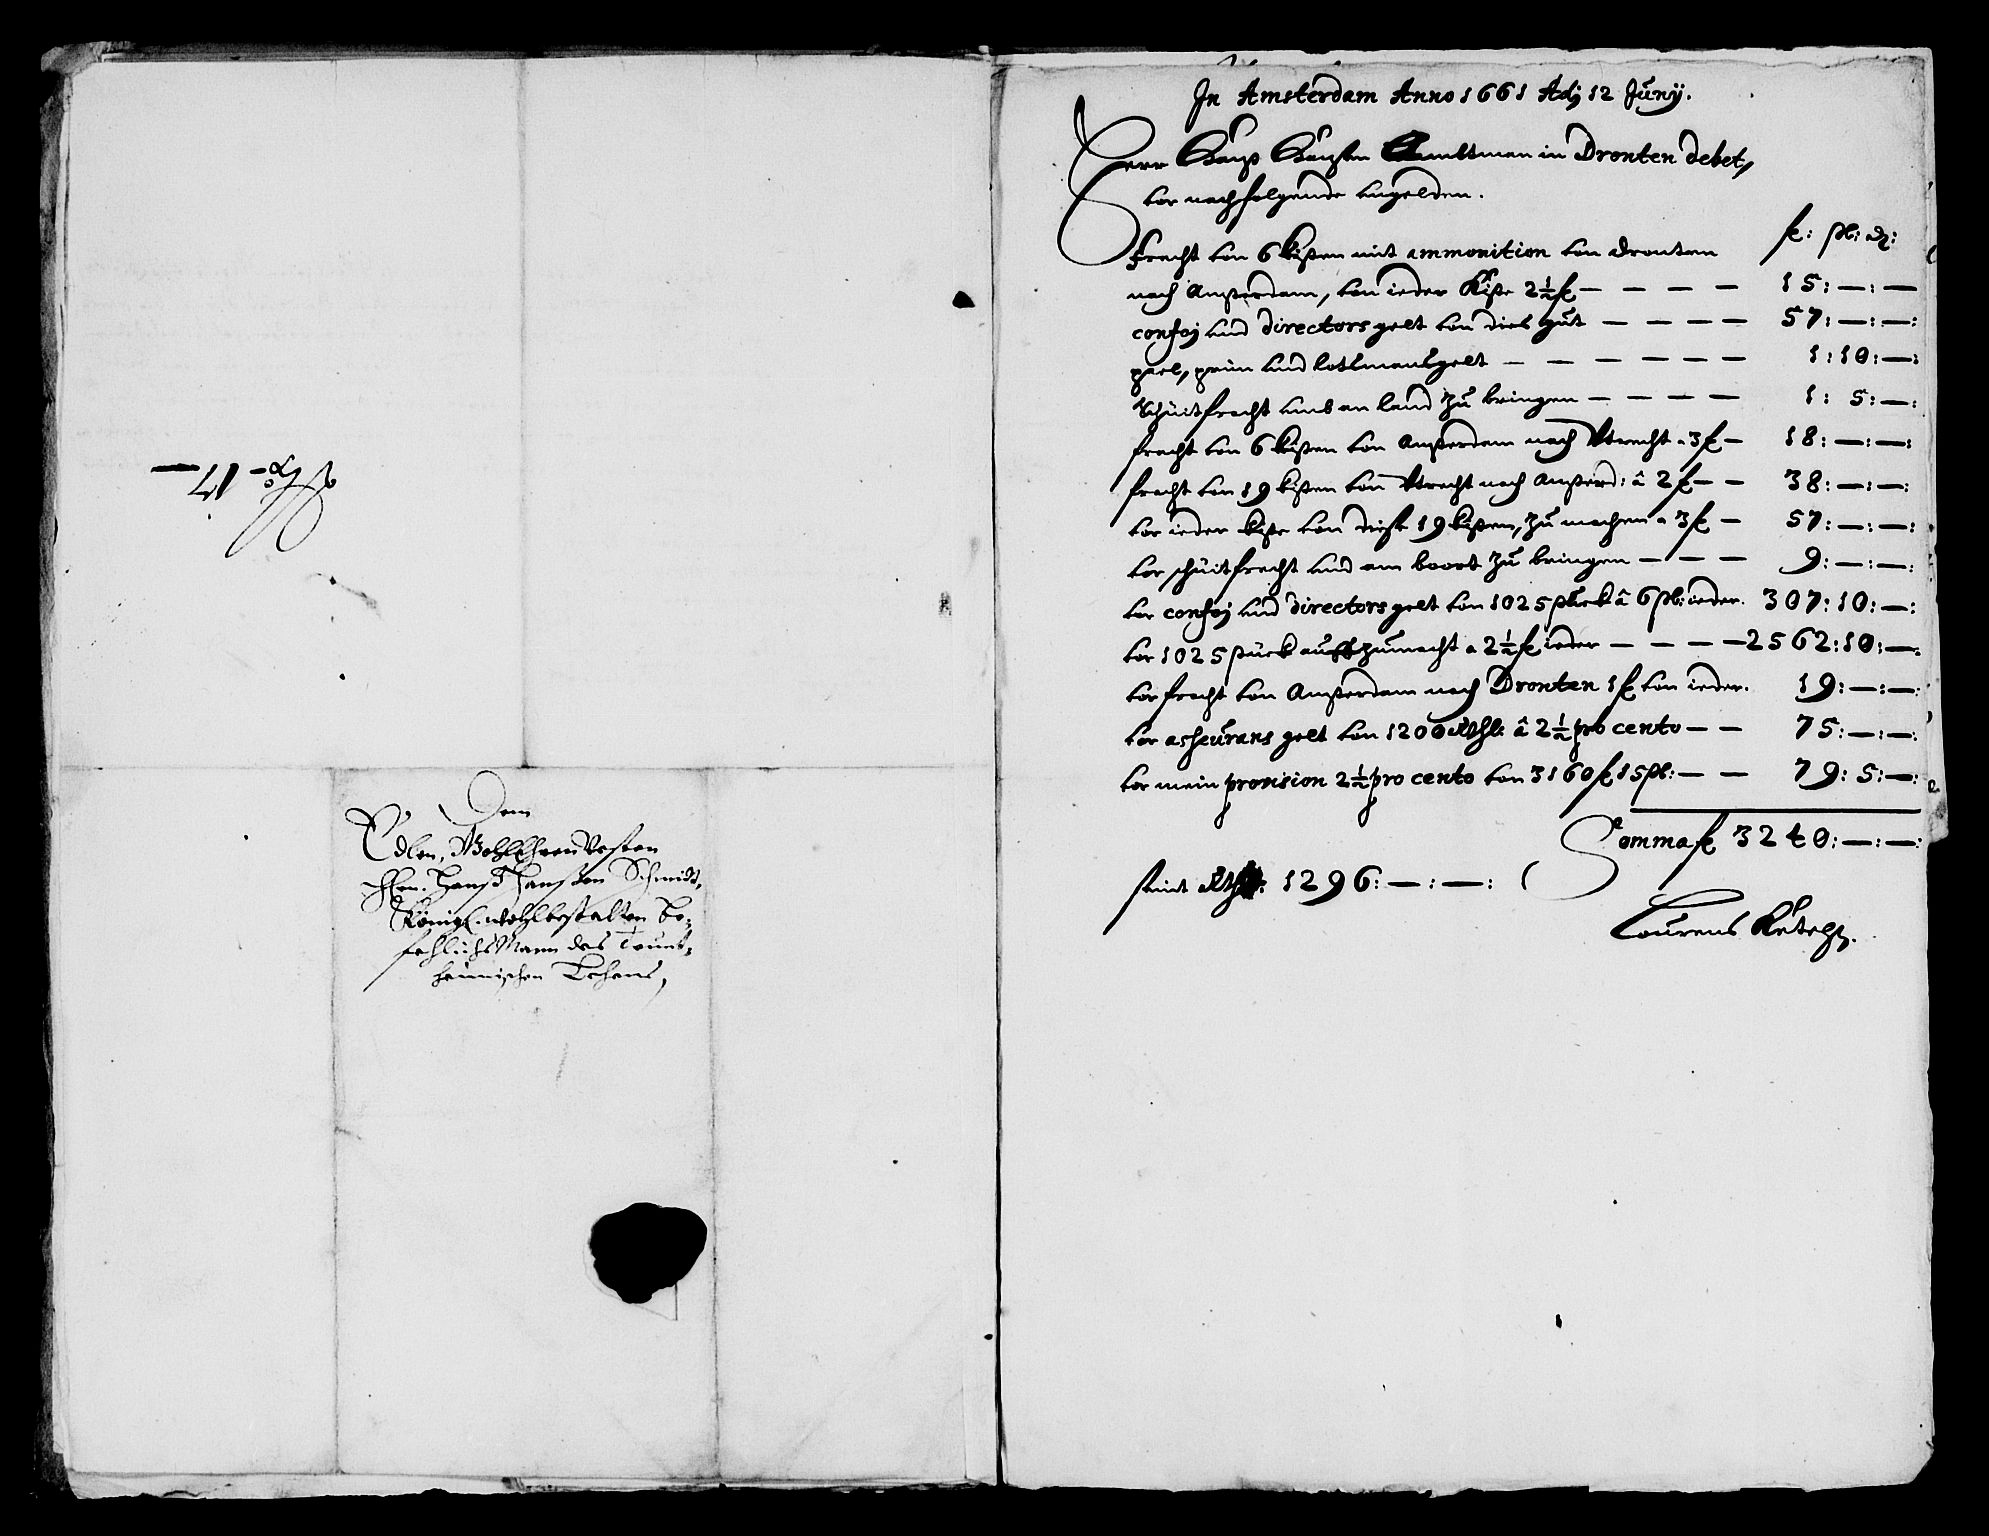 No 17
Dem
Edlen, WohlEhrenVesten
Hern. Hanß Hanßen Schmidt,
Königl. wohlbestalten Be-
fehlichsMann des Trunt-
heimischen Lehens,
In Amsterdam Anno 1661 Adj 12 Junij.
Herr Hanß Hanßen Ambtman in Dronten debet,
vor nachfolgende ungelden.
fl: stl: d:
Fracht von 6 kisten mit ammonition von Dronten
nach Amsterdam, von ieder Kiste 2½ fl — — — — 15: —: —
confoj und directors gelt von dies gut — — — — 57: —: —:
pael, prim und lotsmansgelt — — — — — — 1: 10: —:
Schuitfracht umb an land zu bringen — — — — 1: 5: —:
fracht von 6 kisten von Amsterdam nach Vtrecht a 3 fl — 18: —: —:
fracht von 19 kisten von Vtrecht nach Amsterd: â 2 fl — — 38: —: —:
vor ieder kiste von diese 19 kisten, zu machen a 3 fl — 57: —: —:
vor schuitfracht und am boort zu bringen — — — 9: —: —:
vor confoj und directors gelt von 1025 stuck â 6 stl: ieder. 307: 10: —:
vor 1025 stuck auffzumacht a 2½ fl ieder — — — — 2562: 10: —:
vor fracht von Amsterdam nach Dronten 1 fl von ieder. 19: —: —:
vor asheurans gelt von 1200 Rthl: â 2½ pro cento — — 75: —: —:
vor mein provision 2½ pro cento von 3160 fl 15 stl: — — 79: 5: —:
Somma fl 3240: —: —:
seint Rthl: 1296: —: —:
Lourens